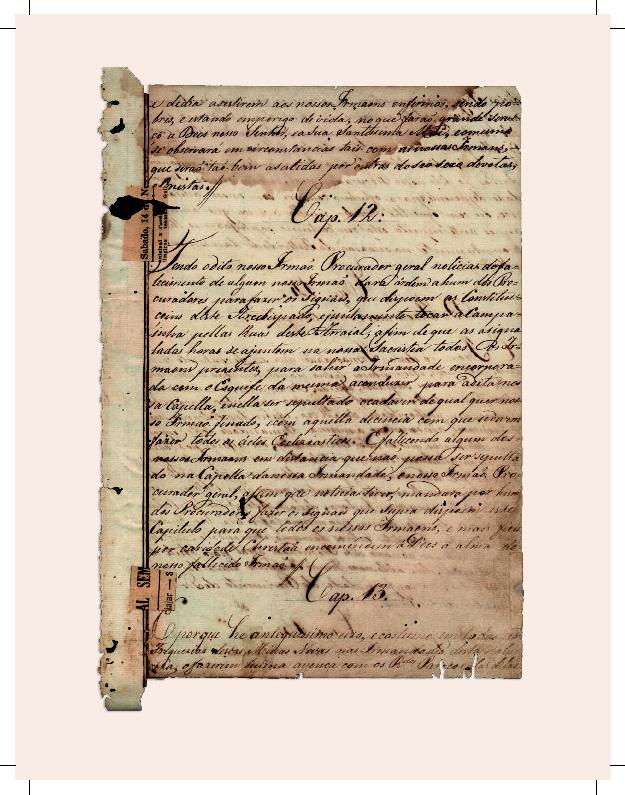 e dedia asestirem aos nossos Irmaens enfirmos, sendo po-
bres, e estando emperigo devida, noque farão grande servi-
co a Deos nosso Senhor, easua Santissima Mai, eomesmo
se observará em circumstancias tais com as nossas Irmans,
que serão tão bem asestidas por outras do seo sexo devotas,
Cap. 12:
Tendo odito nosso Irmão Procurador geral noticias dofa-
lecimento de algum nosso Irmão dara ordem ahum dos Pro-
curadores parafazer os Signais, que dispoem as Constitui-
coins deste Arcebispado, ejuntamente tocar a Campa-
inha pellas Ruas deste Arraial, afim de que as asigna-
ladas horas se ajuntem na nossa Sacristia todos os Ir-
maens prezentes, para sahir a Irmandade encorpora-
da com o Esquife da mesma aconduzir para adita nos-
sa Capella, enella ser sepultado ocadaver de qual quer nos-
so Irmão finado, ecom aquella decencia com que sedevem
fazer todos os actos Ecclesiasticos. Efallecendo algum dos
nossos Irmaens em distancia que não possa ser sepulta-
do na Capella danossa Irmandade, onosso Irmão Pro-
curador geral, asim que noticia tiver, mandara por hum
dos Procuradores fazer os signais que supra dispoem este
Capitulo para que todos os nossos Irmaens, e mais fieis
por caridade Christãa encomendem a Deos a alma do
nosso fallecido Irmão
Cap. 13.
E porque he antiquissimo uzo, e costume em todas as
Freguezias destas Minas Novas nas Irmandades
ofazerem huma avenca com os R.dos Parocos
Sabado, 14
AL SEM